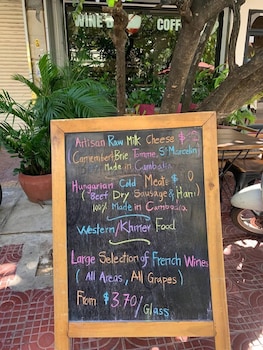 WINE COFF
Artisan Raw Milk Cheese $
Camembert/Brie Tomme, St Marcelin
Made in Cambodia
Hungarian Cold Meats $
(Beef Dry Sausage & Ham)
100% Made in Cambodia
Western/Khmer Food
Large Selection of French Wines
(All Areas, All Grapes)
From $3.70/Glass